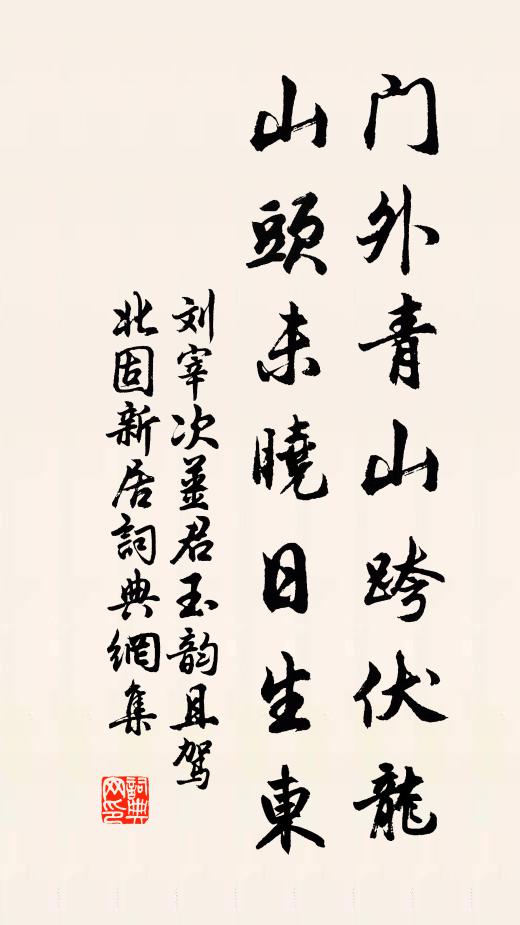 门外青山跨伏龍
山頭未曉日生東
刘宰次姜君玉韵且駕
北固新居詞典網集
詞典
网印